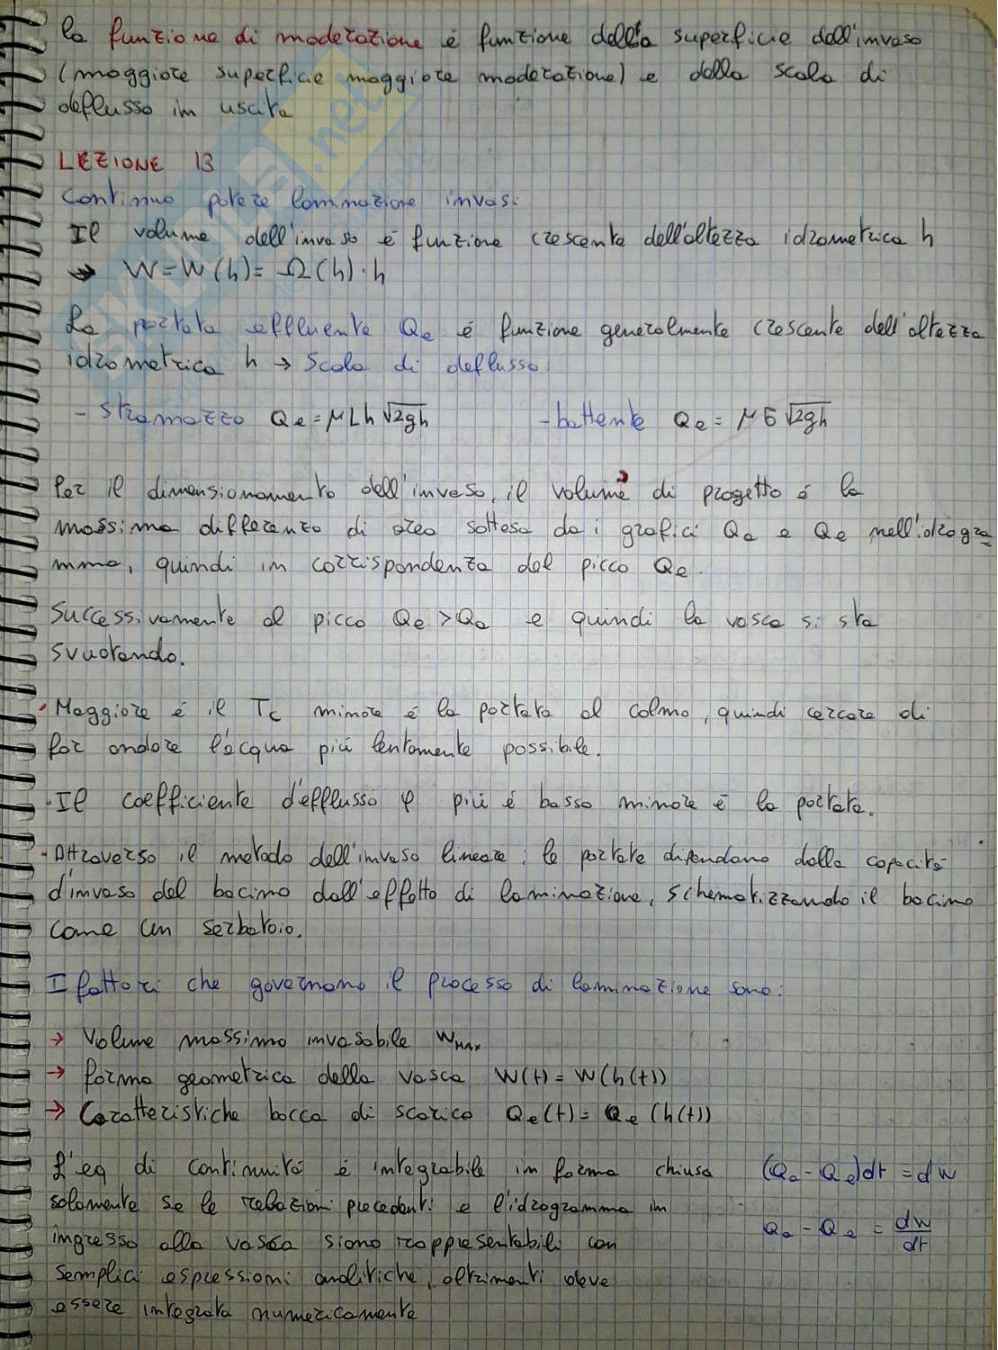 la funzione di moderazione é funzione della superficie dell'invaso
(maggiore superficie maggiore moderazione) e dalla scala di
deflusso in uscita
LEZIONE 13
Continuo potere laminazione invasi
Il volume dell'invaso é funzione crescente dell'altezza idrometrica h
→ W=W(h)= Ω(h)·h
La portata effluente Qe é funzione generalmente crescente dell'altezza
idrometrica h → Scala di deflusso:
- stramazzo Qe=μLh√2gh - battente Qe= μ6√2gh
Per il dimensionamento dell'invaso, il volume di progetto é la
massima differenza di area sottesa da i grafici Qa e Qe nell'idrogra
mma, quindi in corrispondenza del picco Qe.
Successivamente al picco Qe>Qa e quindi la vasca si sta
svuotando.
· Maggiore é il Tc minore é la portata al colmo, quindi cercare di
far andare l'acqua piú lentamente possibile.
· Il coefficiente d'efflusso φ piú é basso minore é la portata.
· Attraverso il metodo dell'invaso lineare: le portate dipendano dalla capacitá
d'invaso del bacino dall'effetto di laminazione, schematizzando il bacino
come un serbatoio.
I fattori che governano il processo di laminazione sono:
→ Volume massimo invasabile WMAX
→ forma geometrica della vasca W(t)=W(h(t))
→ Caratteristiche bocca di scarico Qe(t)=Qe(h(t))
L'eq di continuitá é integrabile in forma chiusa (Qa-Qe)dt=dW
solamente se le relazioni precedenti e l'idrogramma in
ingresso alla vasca siano rappresentabili con Qa-Qe=dW/dt
semplici espressioni analitiche, altrimenti deve
essere integrata numericamente